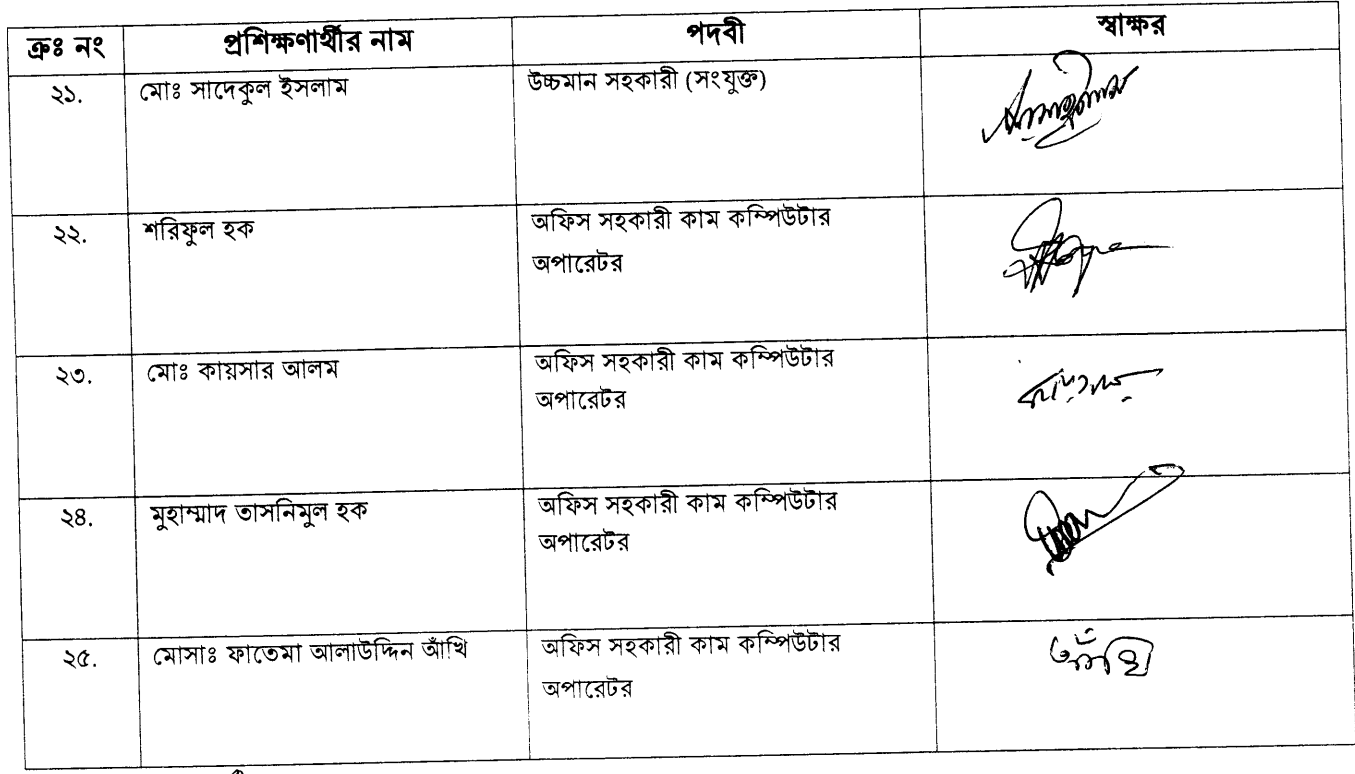 ক্রঃ নং প্রশিক্ষণার্থীর নাম পদবী স্বাক্ষর
২১. মোঃ সাদেকুল ইসলাম উচ্চমান সহকারী (সংযুক্ত)
২২. শরিফুল হক অফিস সহকারী কাম কম্পিউটার
অপারেটর
২৩. মোঃ কায়সার আলম অফিস সহকারী কাম কম্পিউটার
অপারেটর
২৪. মুহাম্মাদ তাসনিমুল হক অফিস সহকারী কাম কম্পিউটার
অপারেটর
২৫. মোসাঃ ফাতেমা আলাউদ্দিন আঁখি অফিস সহকারী কাম কম্পিউটার আঁখি
অপারেটর